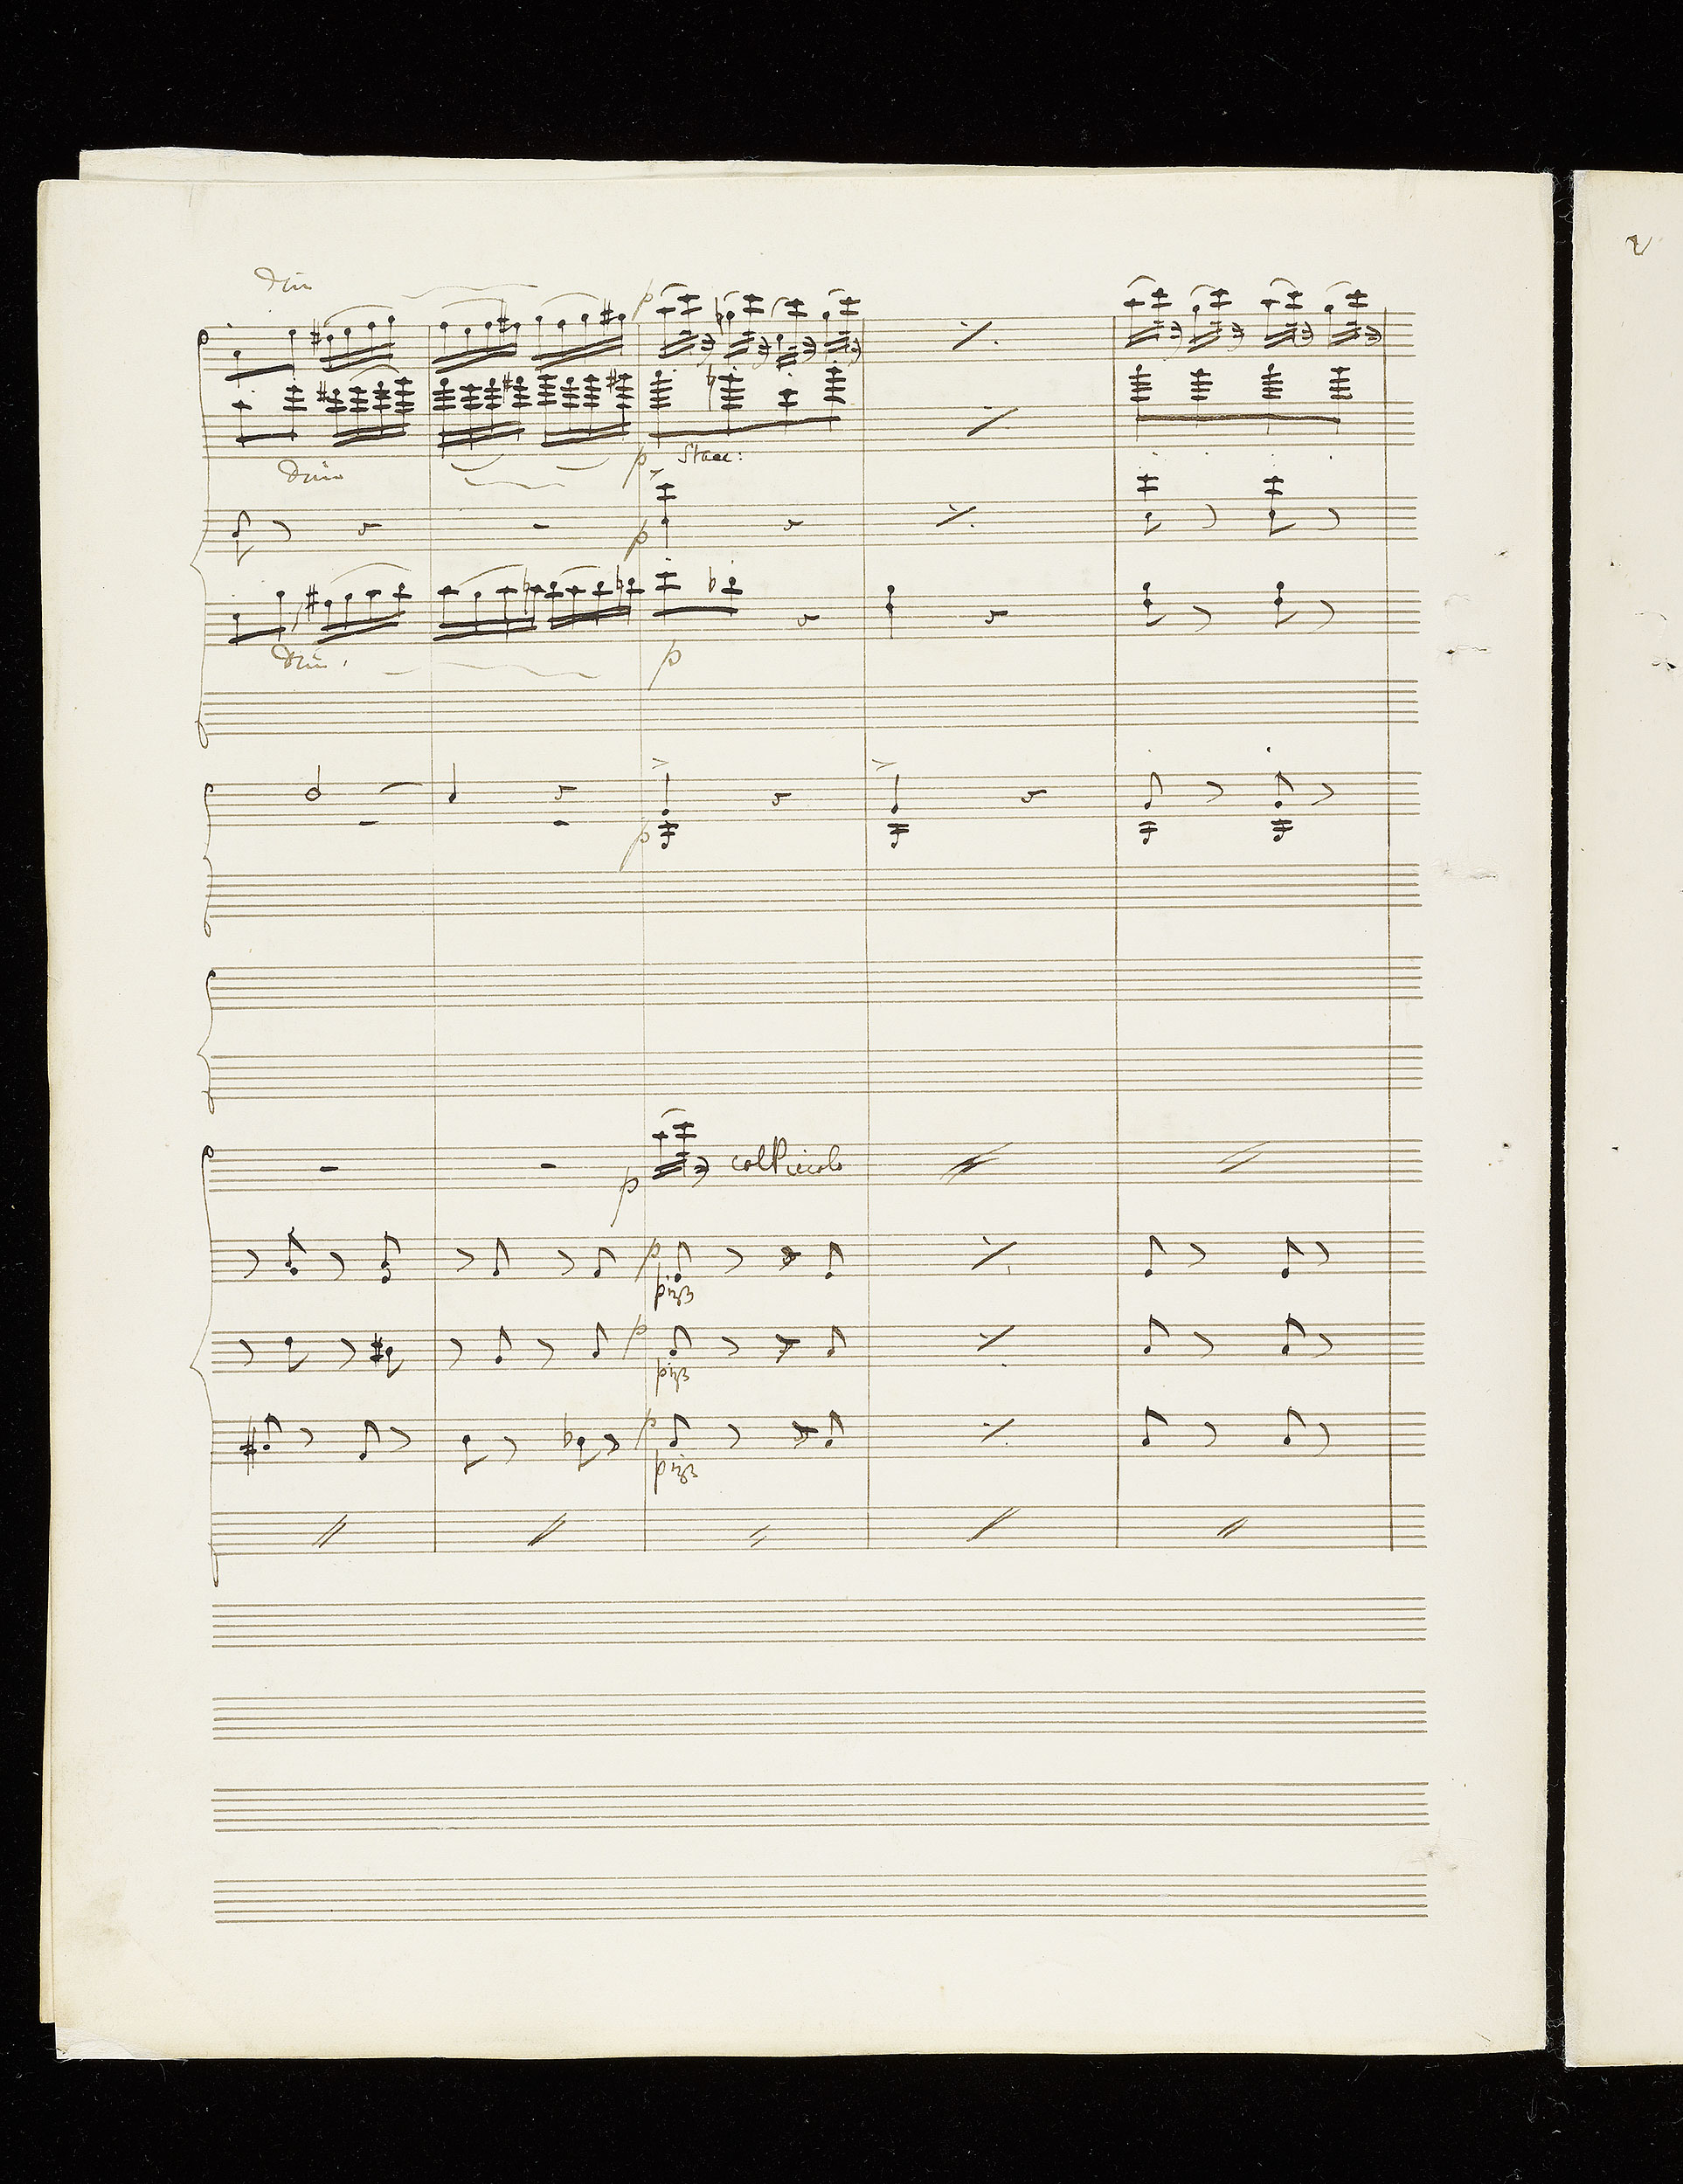 Dim
p
p Stacc:
Dim
p
Dim.
p
p
p col Piccolo
p
pizz
p
pizz
p
pizz